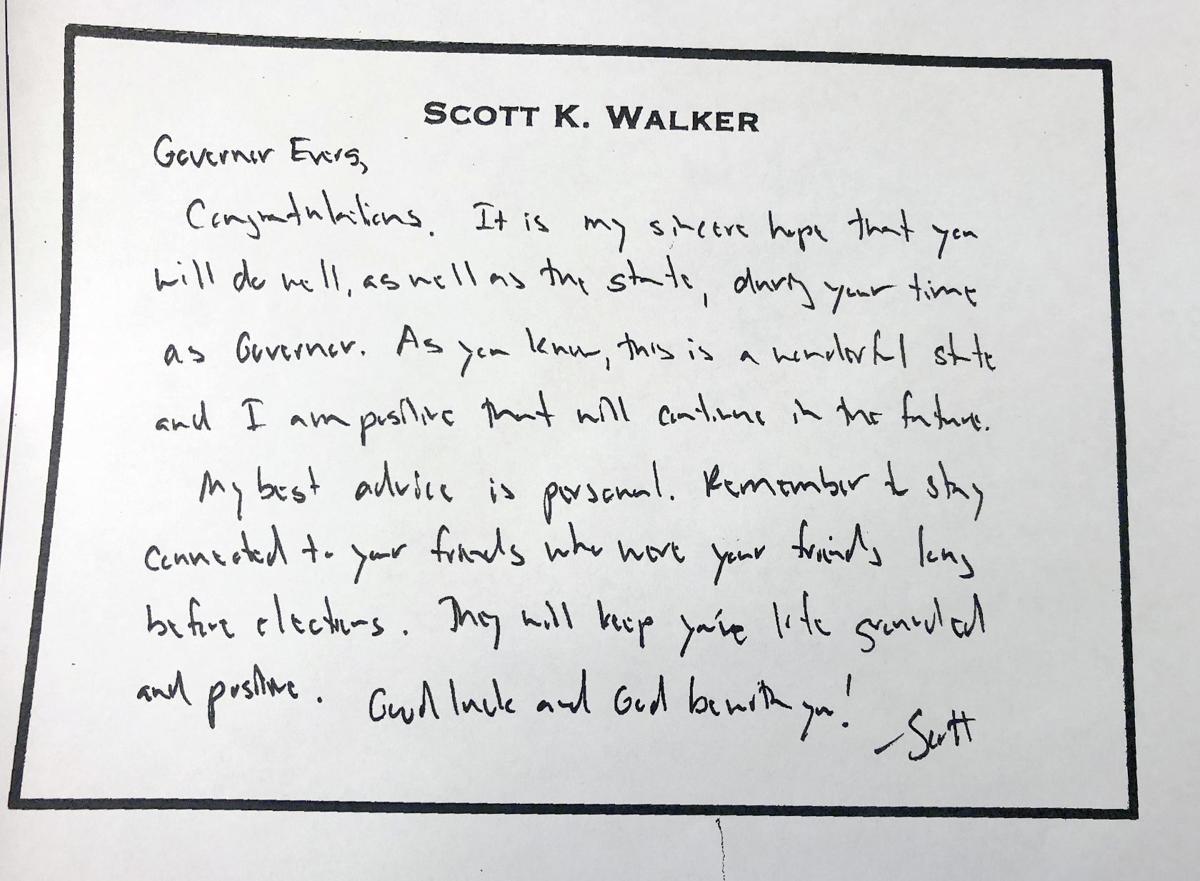 SCOTT K. WALKER
Governor Evers,
Congratulations. It is my sincere hope that you
will do well, as well as the state, during your time
as Governor. As you know, this is a wonderful state
and I am positive that will continue in the future.
My best advice is personal. Remember to stay
connected to your friends who were your friends long
before elections. They will keep your life grounded
and positive. Good luck and God be with you!
-Scott